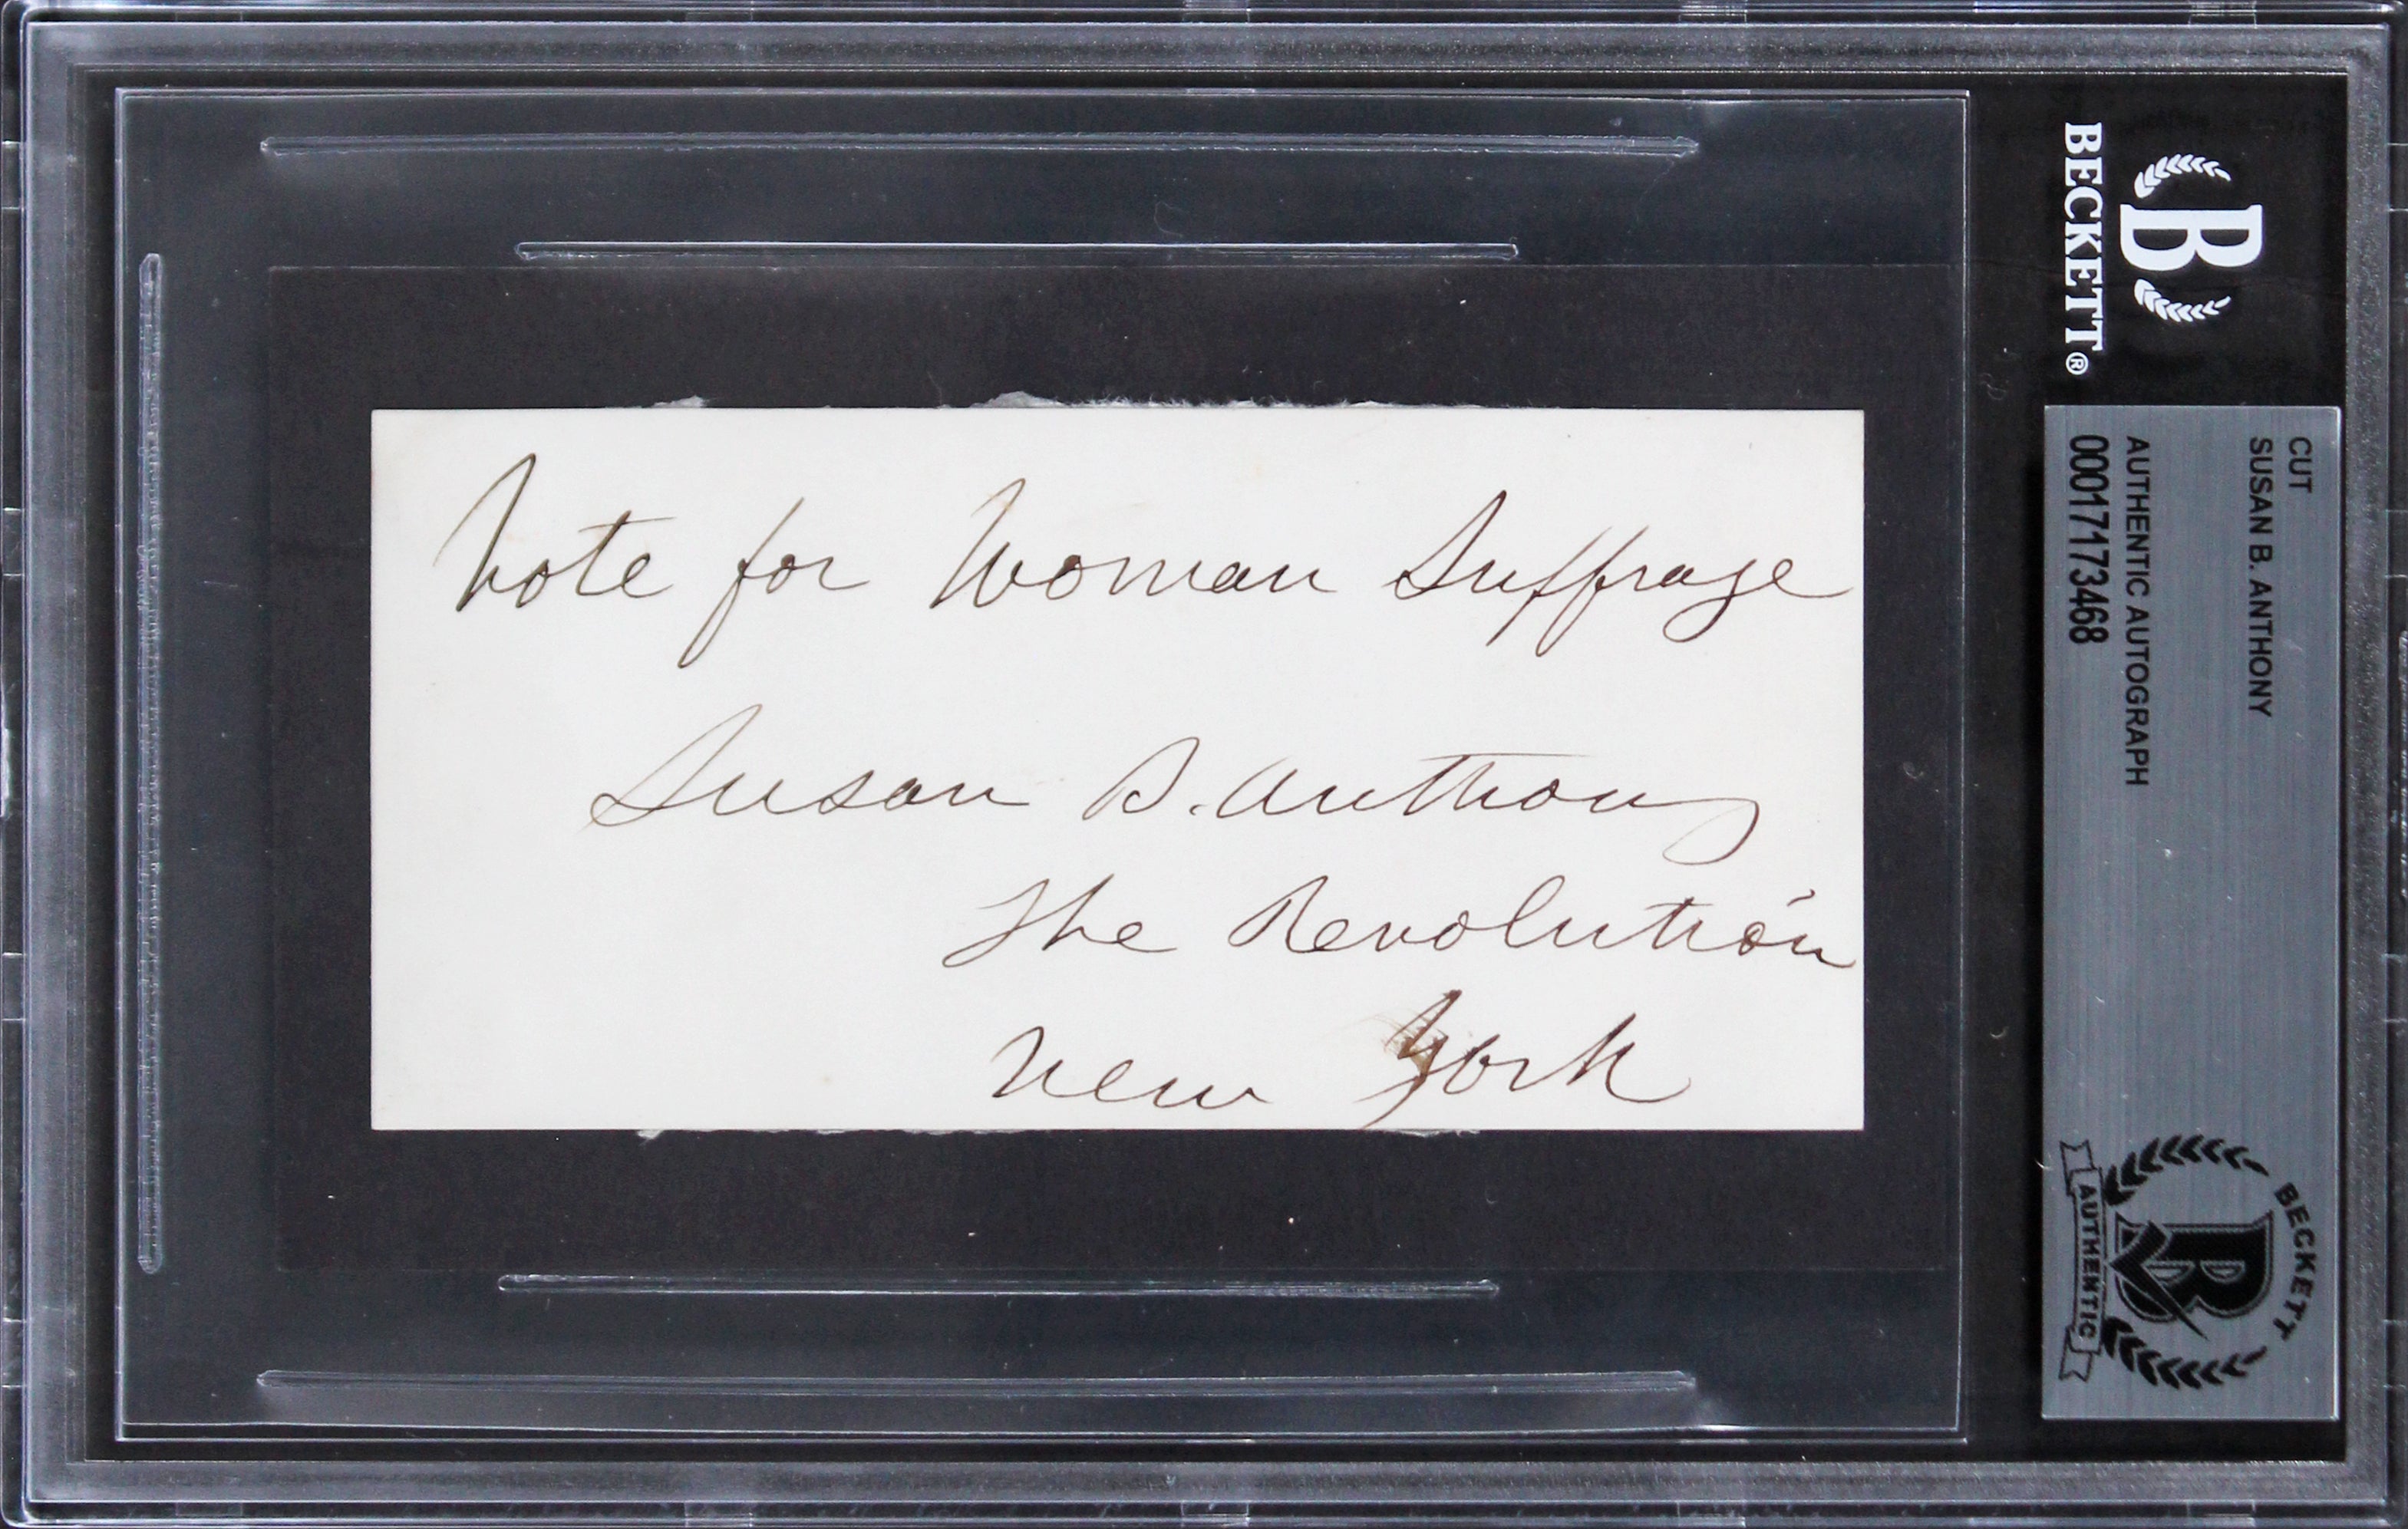 Vote for Woman Suffrage
Susan B. Anthony
The Revolution
New York
B
BECKETT®
CUT
SUSAN B. ANTHONY
AUTHENTIC AUTOGRAPH
00017173468
BECKETT
B
AUTHENTIC